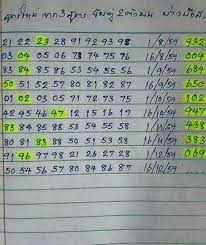 สูตรใหม่ จาก 3 สูตร จับคู่ 2 ตัวบน
21 22 23 28 91 92 93 98 1/8/59 932
03 04 05 06 73 74 75 76 16/8/59 004
83 84 85 86 53 54 55 56 1/9/59 684
50 51 52 57 80 81 82 87 16/9/59 650
01 02 03 05 71 72 73 75 1/10/59 102
42 45 46 47 12 15 16 17 16/10/59 947
83 84 85 88 53 54 55 58 1/11/59 438
80 81 83 88 50 51 53 58 16/11/59 383
91 96 97 98 21 26 27 28 1/12/59 069
50 54 56 57 80 84 86 87 16/12/59